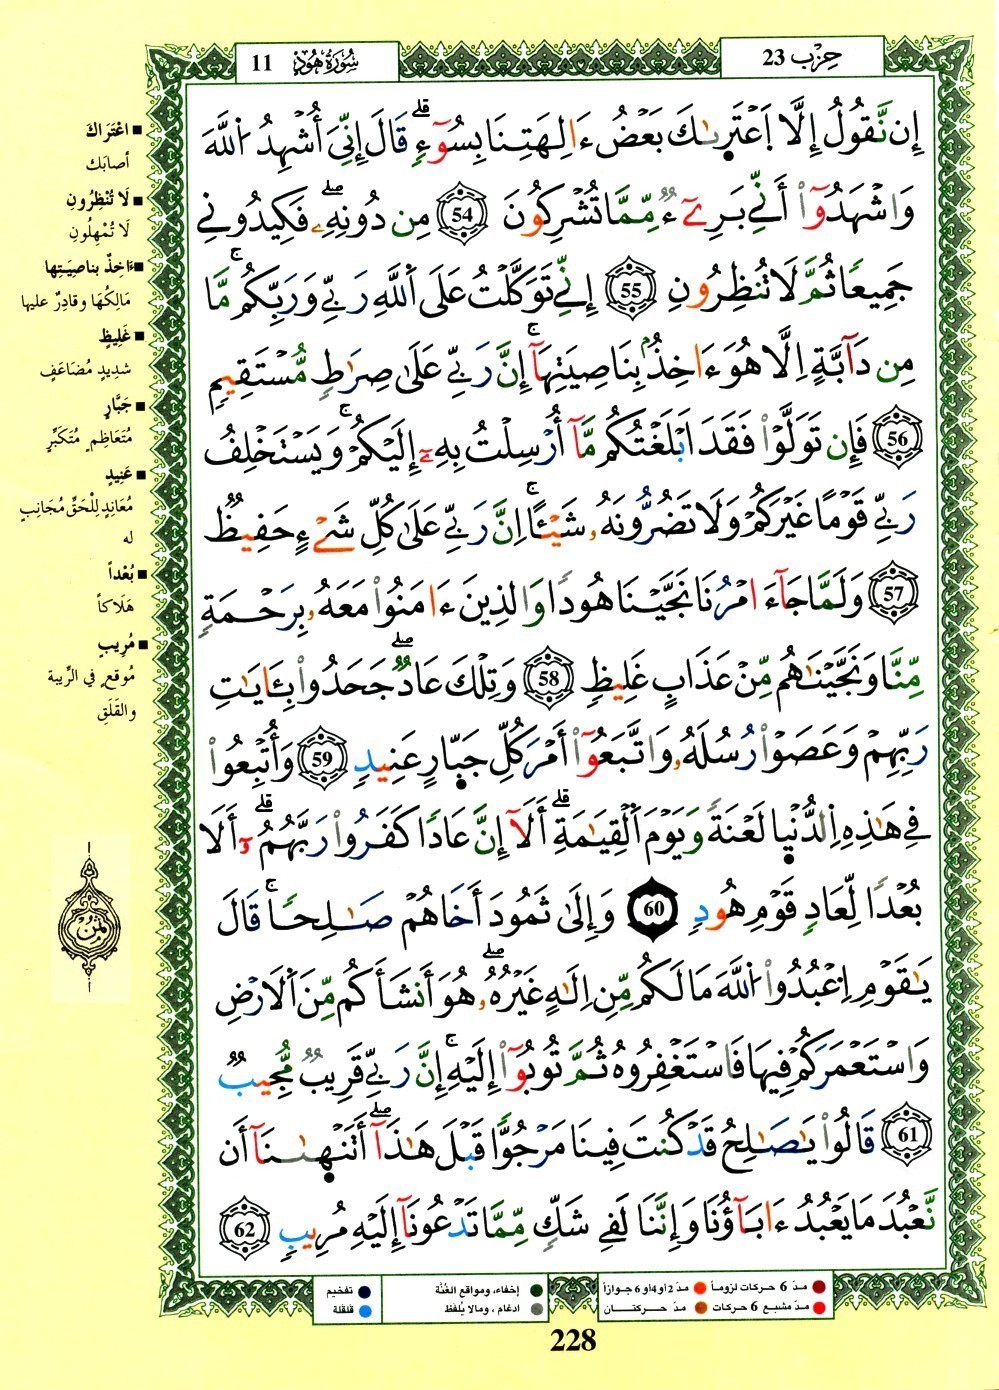 سُورَةُ هُودٍ 11
حِزْب 23
إِن نَّقُولُ إِلَّا اَعْتَرٜىٰكَ بَعْضُ ءَالِهَتِنَا بِسُوٓءٖۖ قَالَ إِنِّيَ أُشْهِدُ اُللَّهَ
وَاشْهَدُوٓاْ أَنِّے بَرِےٓءٞ مِّمَّا تُشْرِكُونَ 54 مِن دُونِهِۦۖ فَكِيدُونِے
جَمِيعاٗ ثُمَّ لَا تُنظِرُونِ 55 إِنِّے تَوَكَّلْتُ عَلَى اَللَّهِ رَبِّے وَرَبِّكُمۚ مَّا
مِن دَآبَّةٍ اِلَّا هُوَ ءَاخِذُۢ بِنَاصِيَتِهَآۚ إِنَّ رَبِّے عَلَىٰ صِرَٰطٖ مُّسْتَقِيمٖ
56 فَإِن تَوَلَّوْاْ فَقَدَ اَبْلَغْتُكُم مَّآ أُرْسِلْتُ بِهِۦٓ إِلَيْكُمْۚ وَيَسْتَخْلِفُ
رَبِّے قَوْماً غَيْرَكُمْ وَلَا تَضُرُّونَهُۥ شَيْـٔاًۚ اِنَّ رَبِّے عَلَىٰ كُلِّ شَےْءٍ حَفِيظٞ
57 وَلَمَّا جَآءَ امْرُنَا نَجَّيْنَا هُوداٗ وَالذِينَ ءَامَنُواْ مَعَهُۥ بِرَحْمَةٖ
مِّنَّا وَنَجَّيْنَٰهُم مِّنْ عَذَابٍ غَلِيظٖ 58 وَتِلْكَ عَادٞۖ جَحَدُواْ بِـَٔايَٰتِ
رَبِّهِمْ وَعَصَوْاْ رُسُلَهُۥ وَاتَّبَعُوٓاْ أَمْرَ كُلِّ جَبّ۪ارٍ عَنِيدٖ 59 وَأُتْبِعُواْ
فِے هَٰذِهِ اِلدُّنْي۪ا لَعْنَةٗ وَيَوْمَ اَلْقِيَٰمَةِۖ أَلَآ إِنَّ عَاداٗ كَفَرُواْ رَبَّهُمُۥٓ أَلَا
بُعْداٗ لِّعَادٖ قَوْمِ هُودٖ 60 وَإِلَىٰ ثَمُودَ أَخَاهُمْ صَٰلِحاٗۚ قَالَ
يَٰقَوْمِ اِعْبُدُواْ اُللَّهَ مَا لَكُم مِّنِ اِلَٰهٍ غَيْرُهُۥۖ هُوَ أَنشَأَكُم مِّنَ اَلَارْضِ
وَاسْتَعْمَرَكُمْ فِيهَا فَاسْتَغْفِرُوهُ ثُمَّ تُوبُوٓاْ إِلَيْهِۚ إِنَّ رَبِّے قَرِيبٞ مُّجِيبٞ
61 قَالُواْ يَٰصَٰلِحُ قَدْ كُنتَ فِينَا مَرْجُوّاٗ قَبْلَ هَٰذَآۖ أَتَنْه۪ىٰنَآ أَن
نَّعْبُدَ مَا يَعْبُدُ ءَابَآؤُنَا وَإِنَّنَا لَفِے شَكّٖ مِّمَّا تَدْعُونَآ إِلَيْهِ مُرِيبٖ 62
■ اعْتَرَاكَ
أصابَك
■ لَا تُنْظِرُونِ
لَا تُمْهِلُونِ
■ ءَاخِذٌ بناصِيَتِها
مَالِكُهَا وقادِرٌ عليها
■ غَلِيظٍ
شديدٍ مُضَاعَفٍ
■ جَبَّارٍ
مُتَعَاظِمٍ مُتَكَبِّرٍ
■ عَنِيدٍ
مُعَانِدٍ لِلْحَقِّ مُجَانِبٍ
له
■ بُعْداً
هَلَاكاً
■ مُرِيبٍ
مُوقعٍ في الرِّيبة
والقَلَقِ
ثمن
مدّ 6 حركات لزوماً
مدّ 2 أو 4 أو 6 جوازاً
مدّ مشبع 6 حركات
مد حركتان
إخفاء، ومواقع الغُنَّة
ادغام، ومالا يُلفَظ
تفخيم
قلقلة
228